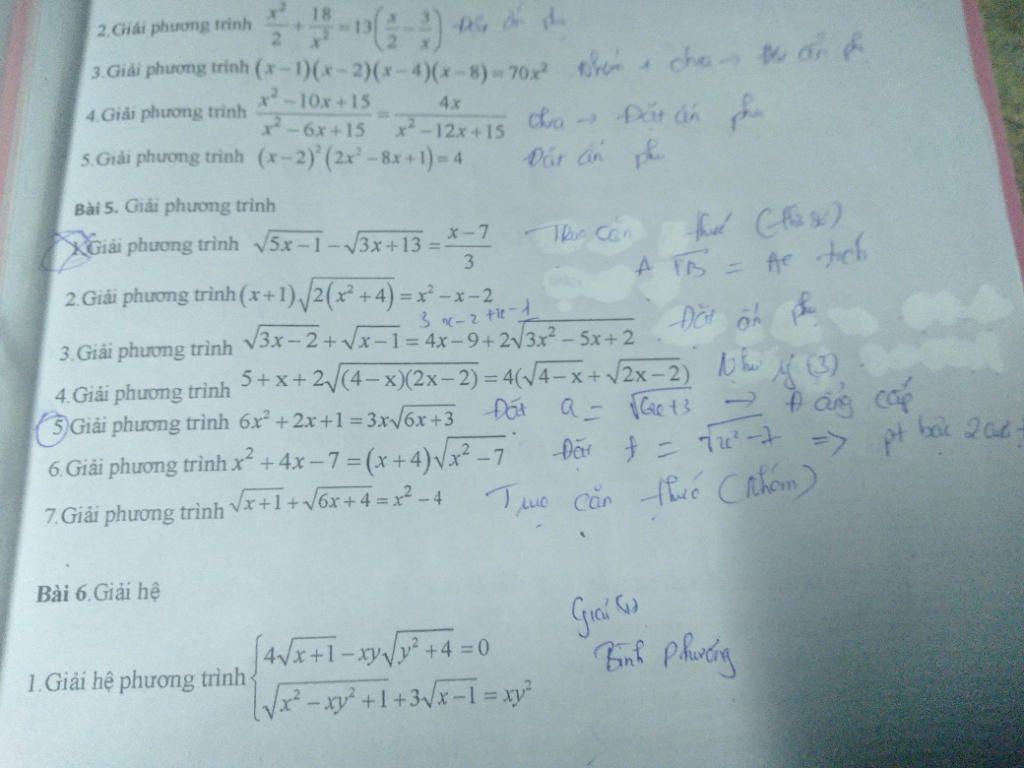 2.Giải phương trình x²/2 + 18/x² = 13(x/2 − 3/x) Đặt ẩn phụ
3.Giải phương trình (x−1)(x−2)(x−4)(x−8) = 70x² Nhóm + chia → Đặt ẩn ph
4.Giải phương trình (x²−10x+15)/(x²−6x+15) = 4x/(x²−12x+15) chia → Đặt ẩn phụ
5.Giải phương trình (x−2)²(2x²−8x+1) = 4 Đặt ẩn phụ
Bài 5. Giải phương trình
1.Giải phương trình √(5x−1) − √(3x+13) = (x−7)/3 Trục căn thức
2.Giải phương trình (x+1)√(2(x²+4)) = x²−x−2 A√B = AC tích
3x−2+x−1
3.Giải phương trình √(3x−2) + √(x−1) = 4x−9+2√(3x²−5x+2) Đặt ẩn phụ
4.Giải phương trình 5+x+2√((4−x)(2x−2)) = 4(√(4−x)+√(2x−2)) Như ý (3)
5 Giải phương trình 6x²+2x+1 = 3x√(6x+3) Đặt a = √(6x+3) → Đẳng cấp
6.Giải phương trình x²+4x−7 = (x+4)√(x²−7) Đặt t = √(x²−7) ⇒ pt bậc 2
7.Giải phương trình √(x+1) + √(6x+4) = x²−4 Trục căn thức (Nhóm)
Bài 6.Giải hệ
Giải (1)
Bình phương
1.Giải hệ phương trình { 4√(x+1) − xy√(y²+4) = 0
√(x²−xy²+1) + 3√(x−1) = xy²